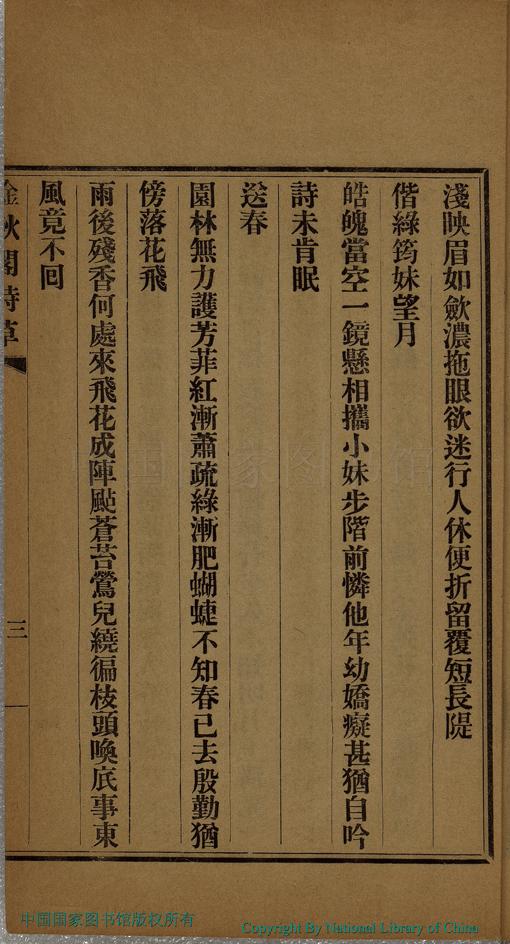 淺映眉如歛濃拖眼欲迷行人休便折留覆短長隄
偕綠筠妹望月
皓魄當空一鏡懸相攜小妹步階前憐他年幼嬌癡甚猶自吟
詩未肯眠
送春
園林無力護芳菲紅漸蕭疏綠漸肥蝴蜨不知春已去殷勤猶
傍落花飛
雨後殘香何處來飛花成陣颭蒼苔鶯兒繞徧枝頭喚底事東
風竟不回
秋閣詩草
三
中国国家图书馆版权所有
Copyright By National Library of China